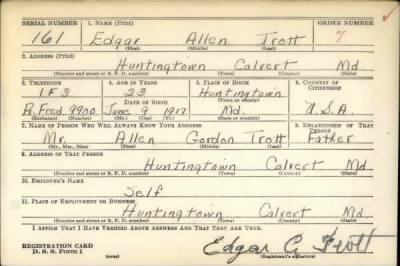 SERIAL NUMBER 1. NAME (Print) ORDER NUMBER
161 Edgar Allen Trott
(First) (Middle) (Last)
2. ADDRESS (Print)
Huntingtown Calvert Md
(Number and street or R. F. D. number) (Town) (County) (State)
3. TELEPHONE 4. AGE IN YEARS 5. PLACE OF BIRTH 6. COUNTRY OF CITIZENSHIP
1F3 23 Huntingtown
DATE OF BIRTH (Town or county)
Pr. Fred 9900 June 9 1917 Md. U.S.A.
(Exchange) (Number) (Mo.) (Day) (Yr.) (State or country)
7. NAME OF PERSON WHO WILL ALWAYS KNOW YOUR ADDRESS 8. RELATIONSHIP OF THAT PERSON
Mr. Allen Gordon Trott Father
(Mr., Mrs., Miss) (First) (Middle) (Last)
9. ADDRESS OF THAT PERSON
Huntingtown Calvert Md
(Number and street or R. F. D. number) (Town) (County) (State)
10. EMPLOYER'S NAME
Self
11. PLACE OF EMPLOYMENT OR BUSINESS
Huntingtown Calvert Md
(Number and street or R. F. D. number) (Town) (County) (State)
I AFFIRM THAT I HAVE VERIFIED ABOVE ANSWERS AND THAT THEY ARE TRUE.
REGISTRATION CARD
D. S. S. Form 1 (over) Edgar A Trott
(Registrant's signature)